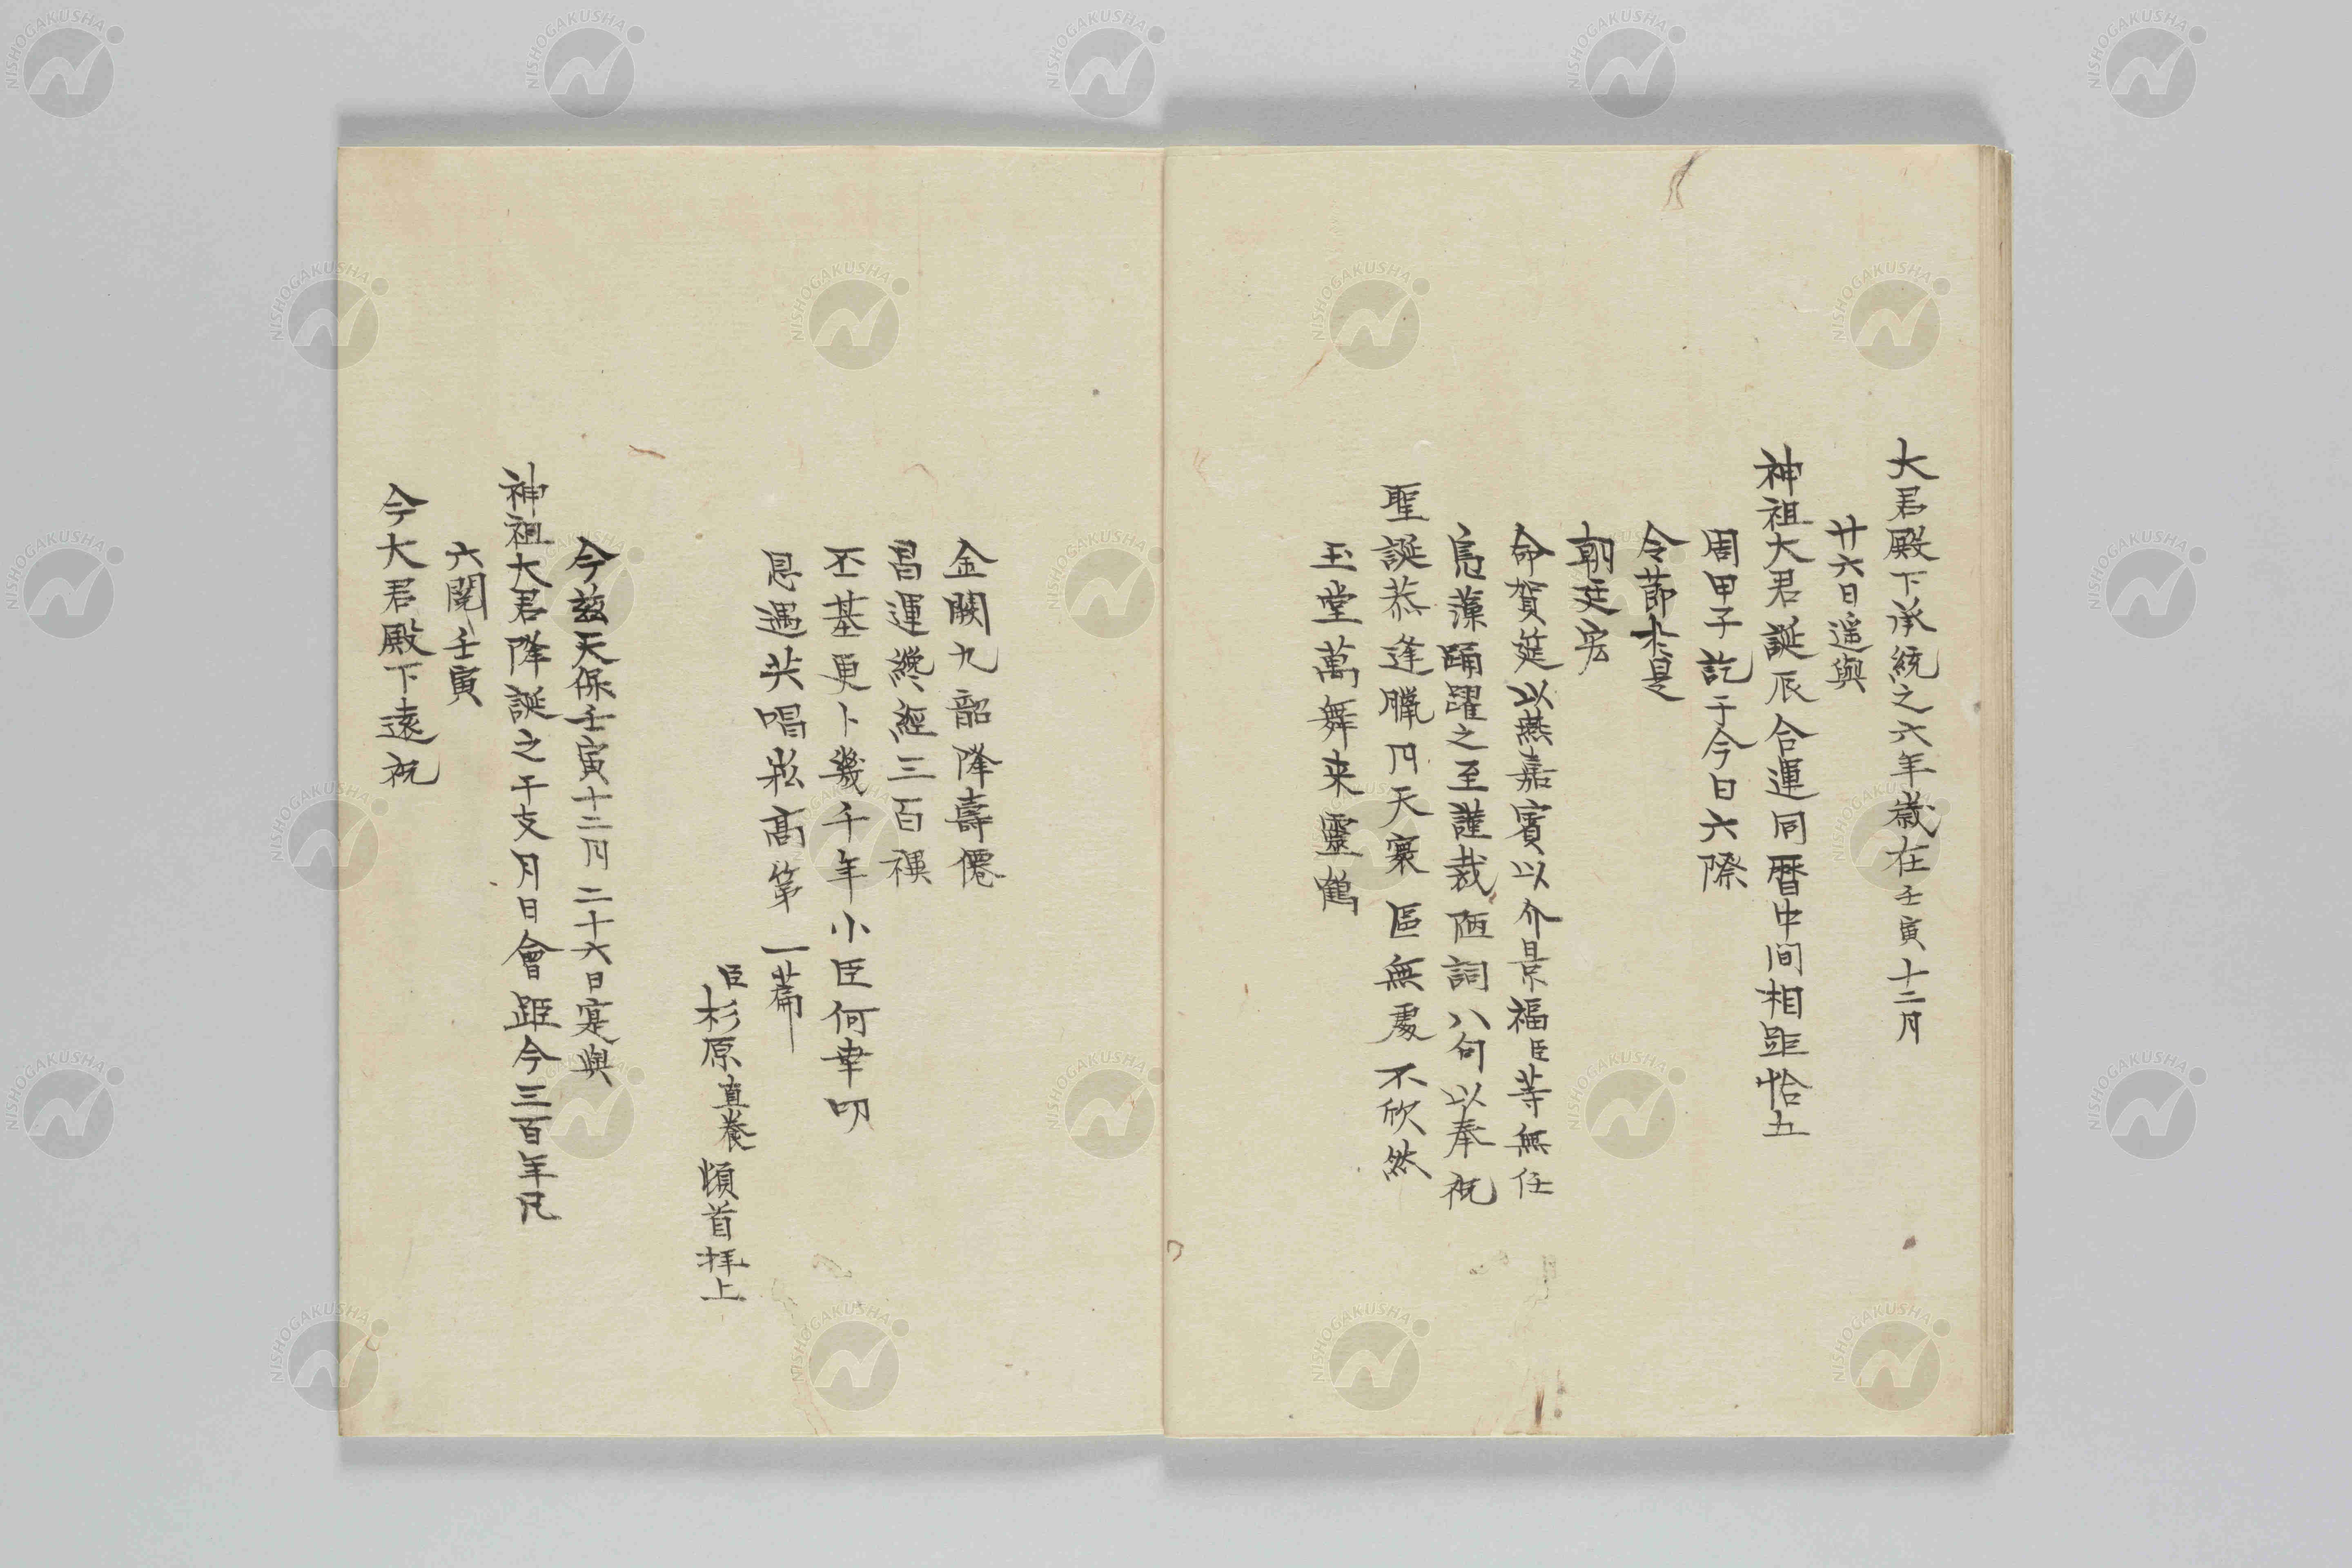 大君殿下承統之六年歳在壬寅十二月
廿六日遥與
神祖大君誕辰合運同暦中間相距恰五
周甲子訖于今日六際
令節於是
朝廷宏
命賀筵以燕嘉賓以介景福臣等無任
鳬藻踊躍之至謹裁陋詞八句以奉祝
聖誕恭逢臘月天寰區無處不欣然
玉堂萬舞来靈鶴
金闕九韶降壽僊
昌運纔經三百禩
丕基更卜幾千年小臣何幸叨
恩遇共唱崧高第一篇
臣杉原直養頓首拝上
今茲天保壬寅十二月二十六日寔與
神祖大君降誕之干支月日會距今三百年凡
六閲壬寅
今大君殿下遠祝
NISHOGAKUSHA